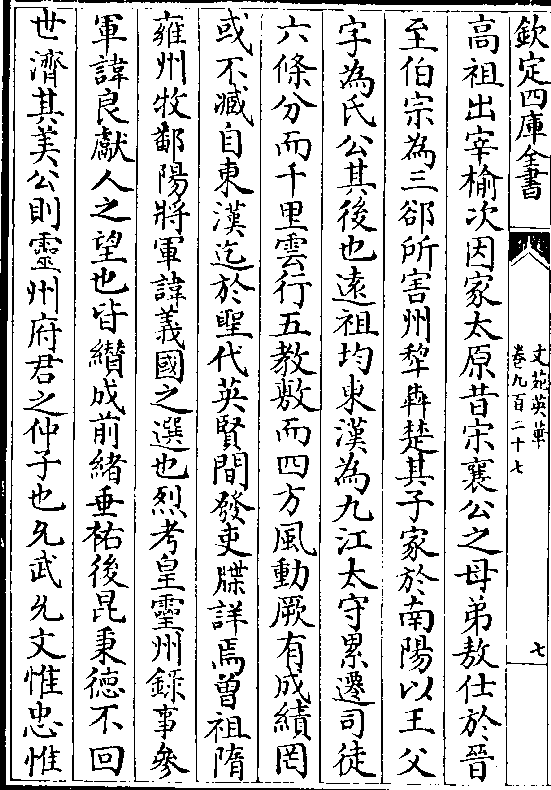 欽定四庫全書
文苑英華
卷九百二十七
七
高祖出宰榆次因家太原昔宋襄公之母弟敖仕於晉
至伯宗為三郤所害州犂犇楚其子家於南陽以王父
字為氏公其後也遠祖均東漢為九江太守累遷司徒
六條分而千里雲行五教敷而四方風動厥有成績罔
或不臧自東漢迄於聖代英賢間發吏牒詳焉曾祖隋
雍州牧鄱陽將軍諱義國之選也烈考皇靈州錄事參
軍諱良獻人之望也皆纘成前緒垂祐後昆秉德不回
世濟其美公則靈州府君之仲子也允武允文惟忠惟